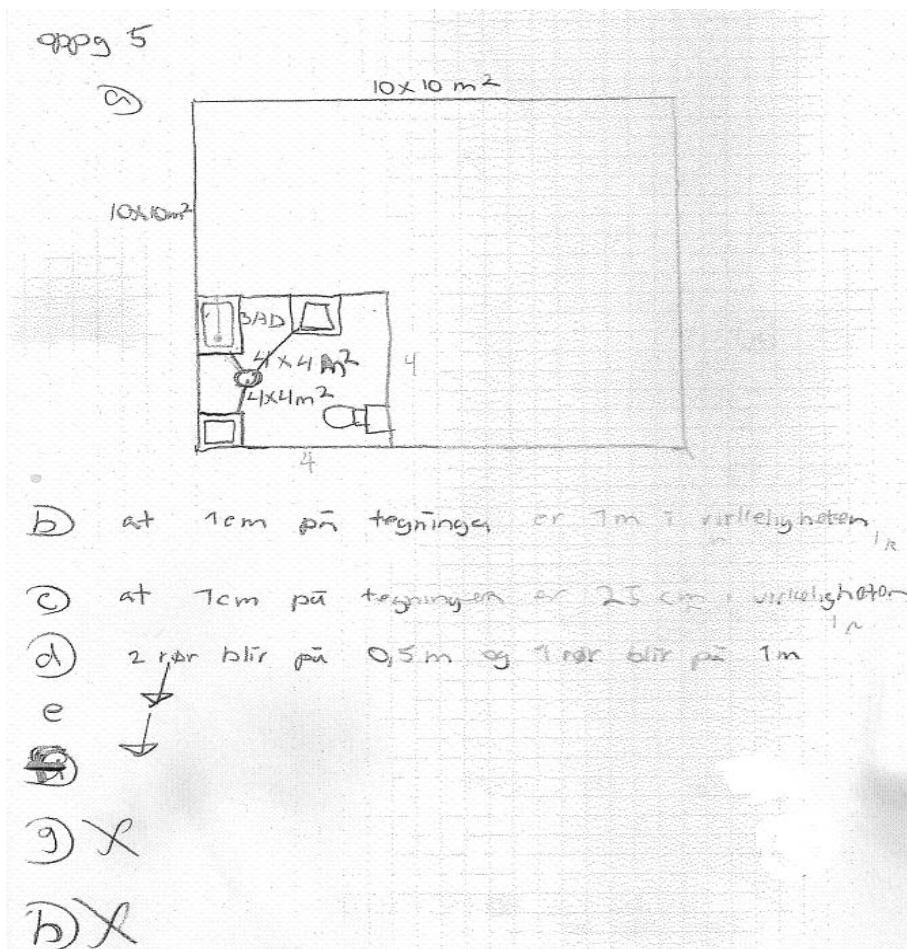 oppg 5
a
10x10 m²
10x10m²
BAD
4x4 m²
4x4m²
4
4
b at 1cm på tegninga er 1m i virkeligheten
c) at 1cm på tegningen er 25 cm i virkeligheten
d) 2 rør blir på 0,5 m og 1 rør blir på 1m
e
g) X
h) X